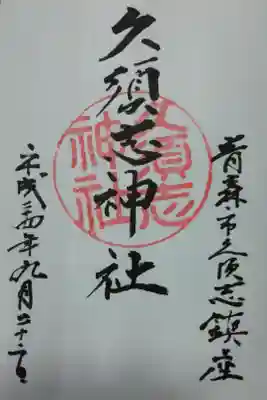 青森市久須志鎮座
久須志神社
平成二四年九月二十二日
久須志
神社